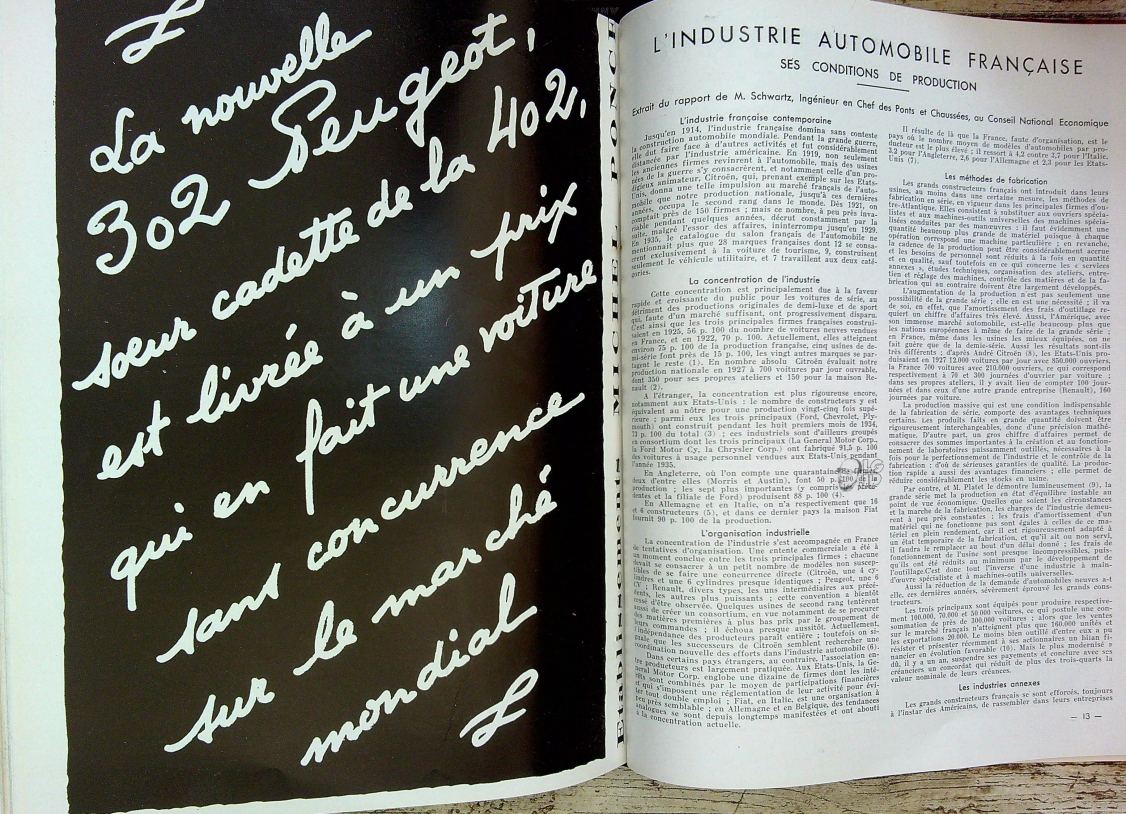 La nouvelle
302 Peugeot,
sœur cadette de la 402,
est livrée à un prix
qui en fait une voiture
sans concurrence
sur le marché
mondial
Etablissement MICHEL DONCE
L'INDUSTRIE AUTOMOBILE FRANÇAISE
SES CONDITIONS DE PRODUCTION
Extrait du rapport de M. Schwartz, Ingénieur en Chef des Ponts et Chaussées, au Conseil National Economique
L'industrie française contemporaine
Jusqu'en 1914, l'industrie française domina sans conteste
la construction automobile mondiale. Pendant la grande guerre,
elle dut faire face à d'autres activités et fut considérablement
distancée par l'industrie américaine. En 1919, non seulement
les anciennes firmes revinrent à l'automobile, mais des usines
nées de la guerre s'y consacrèrent, et notamment celle d'un pro-
digieux animateur, Citroën, qui, prenant exemple sur les Etats-
Unis, donna une telle impulsion au marché français de l'auto-
mobile que notre production nationale, jusqu'à ces dernières
années, occupa le second rang dans le monde. Dès 1921, on
comptait près de 150 firmes ; mais ce nombre, à peu près inva-
riable pendant quelques années, décrut constamment par la
suite, malgré l'essor des affaires, ininterrompu jusqu'en 1929.
En 1935, le catalogue du salon français de l'automobile ne
mentionnait plus que 28 marques françaises dont 12 se consa-
crent exclusivement à la voiture de tourisme, 9, construisent
seulement le véhicule utilitaire, et 7 travaillent aux deux caté-
gories.
La concentration de l'industrie
Cette concentration est principalement due à la faveur
rapide et croissante du public pour les voitures de série, au
détriment des productions originales de demi-luxe et de sport
qui, faute d'un marché suffisant, ont progressivement disparu.
C'est ainsi que les trois principales firmes françaises construi-
saient en 1925, 56 p. 100 du nombre de voitures neuves vendues
en France, et en 1922, 70 p. 100. Actuellement, elles atteignent
environ 75 p. 100 de la production française, cinq usines de de-
mi-série font près de 15 p. 100, les vingt autres marques se par-
tagent le reste (1). En nombre absolu Citroën évaluait notre
production nationale en 1927 à 700 voitures par jour ouvrable,
dont 350 pour ses propres ateliers et 150 pour la maison Re-
nault (2).
A l'étranger, la concentration est plus rigoureuse encore,
notamment aux Etats-Unis : le nombre de constructeurs y est
équivalent au nôtre pour une production vingt-cinq fois supé-
rieure ; parmi eux les trois principaux (Ford, Chevrolet, Ply-
mouth) ont construit pendant les huit premiers mois de 1934,
73 p. 100 du total (3) ; ces industriels sont d'ailleurs groupés
en consortium dont les trois principaux (La General Motor Corp.,
la Ford Motor Cy, la Chrysler Corp.) ont fabriqué 91,5 p. 100
des voitures à usage personnel vendues aux Etats-Unis pendant
l'année 1935.
En Angleterre, où l'on compte une quarantaine
deux d'entre elles (Morris et Austin), font 50 p.
production ; les sept plus importantes (y compris
dentes et la filiale de Ford) produisent 88 p. 100 (4).
En Allemagne et en Italie, on n'a respectivement que 16
et 6 constructeurs (5), et dans ce dernier pays la maison Fiat
fournit 90 p. 100 de la production.
L'organisation industrielle
La concentration de l'industrie s'est accompagnée en France
de tentatives d'organisation. Une entente commerciale a été à
un moment conclue entre les trois principales firmes ; chacune
devait se consacrer à un petit nombre de modèles non suscep-
tibles de se faire une concurrence directe (Citroën, une 4 cy-
lindres et une 6 cylindres presque identiques ; Peugeot, une 6
CV ; Renault, divers types, les uns intermédiaires aux précé-
dents, les autres plus puissants ; cette convention a bientôt
cessé d'être observée. Quelques usines de second rang tentèrent
aussi de créer un consortium, en vue notamment de se procurer
les matières premières à plus bas prix par le groupement de
leurs commandes ; il échoua presque aussitôt. Actuellement,
l'indépendance des producteurs paraît entière ; toutefois on si-
gnale que les successeurs de Citroën semblent rechercher une
coordination nouvelle des efforts dans l'industrie automobile (6).
Dans certains pays étrangers, au contraire, l'association en-
tre producteurs est largement pratiquée. Aux Etats-Unis, la Ge-
neral Motor Corp. englobe une dizaine de firmes dont les inté-
rêts sont combinés par le moyen de participations financières
et qui s'imposent une réglementation de leur activité pour évi-
ter tout double emploi ; Fiat, en Italie, est une organisation à
peu près semblable ; en Allemagne et en Belgique, des tendances
analogues se sont depuis longtemps manifestées et ont abouti
à la concentration actuelle.
Il résulte de là que la France, faute d'organisation, est le
pays où le nombre moyen de modèles d'automobiles par pro-
ducteur est le plus élevé ; il ressort à 4,2 contre 3,7 pour l'Italie,
3,2 pour l'Angleterre, 2,6 pour l'Allemagne et 2,3 pour les Etats-
Unis (7).
Les méthodes de fabrication
Les grands constructeurs français ont introduit dans leurs
usines, au moins dans une certaine mesure, les méthodes de
fabrication en série, en vigueur dans les principales firmes d'ou-
tre-Atlantique. Elles consistent à substituer aux ouvriers spécia-
listes et aux machines-outils universelles des machines spécia-
lisées conduites par des manœuvres ; il faut évidemment une
quantité beaucoup plus grande de matériel puisque à chaque
opération correspond une machine particulière ; en revanche,
la cadence de la production peut être considérablement accrue
et les besoins de personnel sont réduits à la fois en quantité
et en qualité, sauf toutefois en ce qui concerne les « services
annexes », études techniques, organisation des ateliers, entre-
tien et réglage des machines, contrôle des matières et de la fa-
brication qui au contraire doivent être largement développés.
L'augmentation de la production n'est pas seulement une
possibilité de la grande série ; elle en est une nécessité ; il va
de soi, en effet, que l'amortissement des frais d'outillage re-
quiert un chiffre d'affaires très élevé. Aussi, l'Amérique, avec
son immense marché automobile, est-elle beaucoup plus que
les nations européennes à même de faire de la grande série ;
en France, même dans les usines les mieux équipées, on ne
fait guère que de la demie-série. Aussi les résultats sont-ils
très différents ; d'après André Citroën (8), les Etats-Unis pro-
duisaient en 1927 12.000 voitures par jour avec 850.000 ouvriers,
la France 700 voitures avec 210.000 ouvriers, ce qui correspond
respectivement à 70 et 300 journées d'ouvrier par voiture ;
dans ses propres ateliers, il y avait lieu de compter 100 jour-
nées et dans ceux d'une autre grande entreprise (Renault), 160
journées par voiture.
La production massive qui est une condition indispensable
de la fabrication de série, comporte des avantages techniques
certains. Les produits faits en grande quantité doivent être
rigoureusement interchangeables, donc d'une précision mathé-
matique. D'autre part, un gros chiffre d'affaires permet de
consacrer des sommes importantes à la création et au fonction-
nement de laboratoires puissamment outillés, nécessaires à la
fois pour le perfectionnement de l'industrie et le contrôle de la
fabrication : d'où de sérieuses garanties de qualité. La produc-
tion rapide a aussi des avantages financiers ; elle permet de
réduire considérablement les stocks en usine.
Par contre, et M. Platet le démontre lumineusement (9), la
grande série met la production en état d'équilibre instable au
point de vue économique. Quelles que soient les circonstances
et la marche de la fabrication, les charges de l'industrie demeu-
rent à peu près constantes : les frais d'amortissement d'un
matériel qui ne fonctionne pas sont égales à celles de ce ma-
tériel en plein rendement, car il est rigoureusement adapté à
un état temporaire de la fabrication, et qu'il ait ou non servi,
il faudra le remplacer au bout d'un délai donné ; les frais de
fonctionnement de l'usine sont presque incompressibles, puis-
qu'ils ont été réduits au minimum par le développement de
l'outillage.C'est donc tout l'inverse d'une industrie à main-
d'œuvre spécialiste et à machines-outils universelles.
Aussi la réduction de la demande d'automobiles neuves a-t-
elle, ces dernières années, sévèrement éprouvé les grands cons-
tructeurs.
Les trois principaux sont équipés pour produire respective-
ment 100.000, 70.000 et 50.000 voitures, ce qui postule une con-
sommation de près de 300.000 voitures ; alors que les ventes
sur le marché français n'atteignent plus que 160.000 unités et
les exportations 20.000. Le moins bien outillé d'entre eux a pu
résister et présenter récemment à ses actionnaires un bilan fi-
nancier en évolution favorable (10). Mais le plus modernisé a
dû, il y a un an, suspendre ses payements et conclure avec ses
créanciers un concordat qui réduit de plus des trois-quarts la
valeur nominale de leurs créances.
Les industries annexes
Les grands constructeurs français se sont efforcés, toujours
à l'instar des Américains, de rassembler dans leurs entreprises
— 13 —